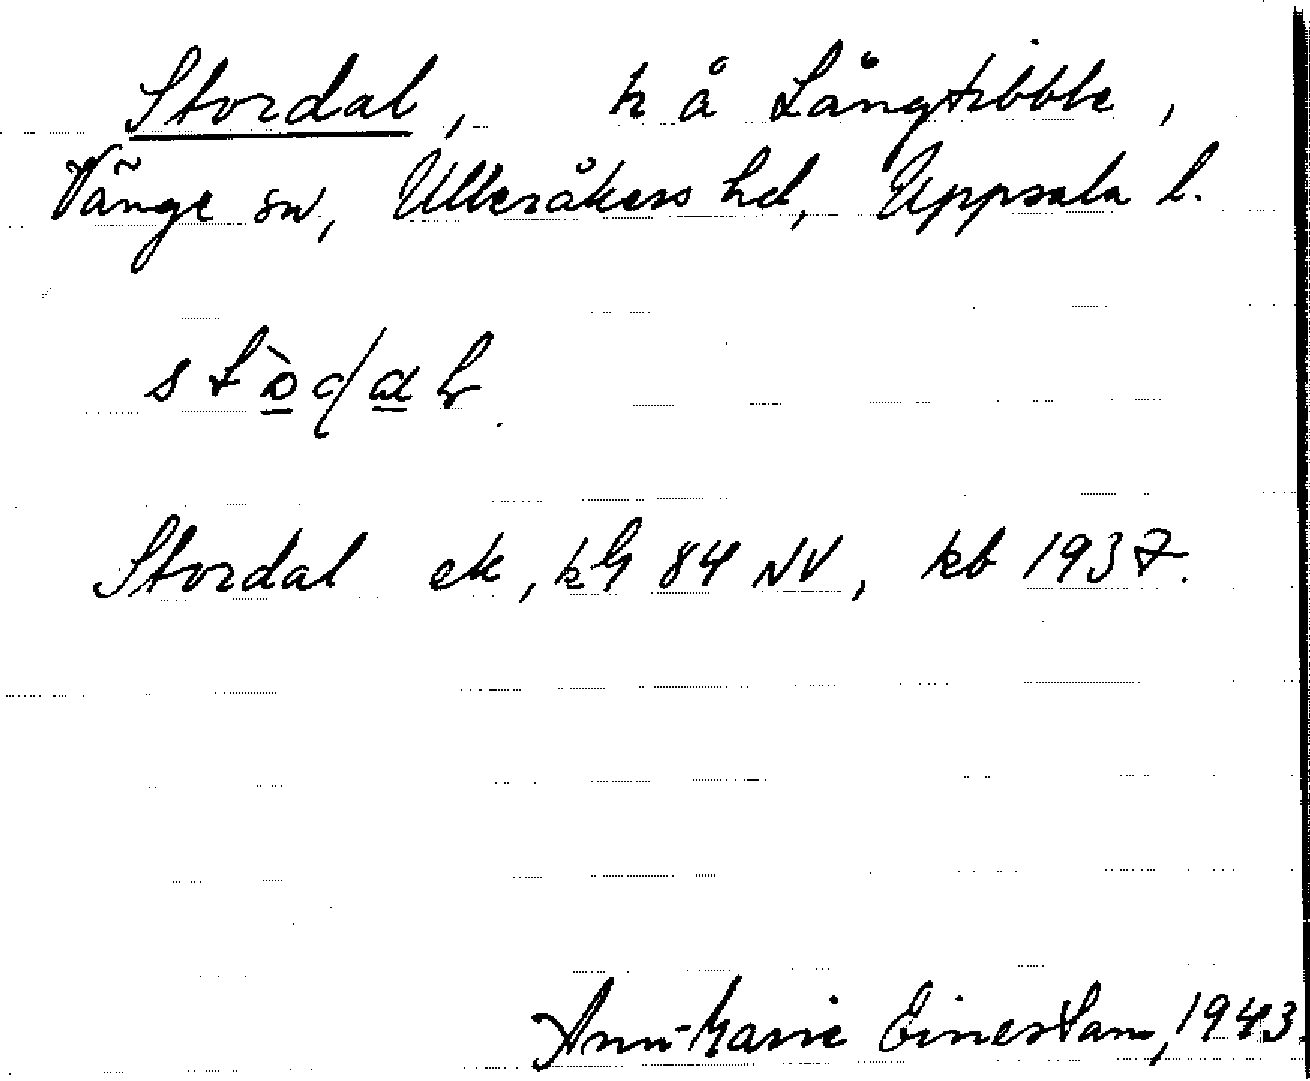 Stordal, h å Långtibble,
Vänge sn, Ulleråkers hd, Uppsala l.
Stordal ek, kG 84 NV, kb 1937.
Ann-Marie Einerstam, 1943